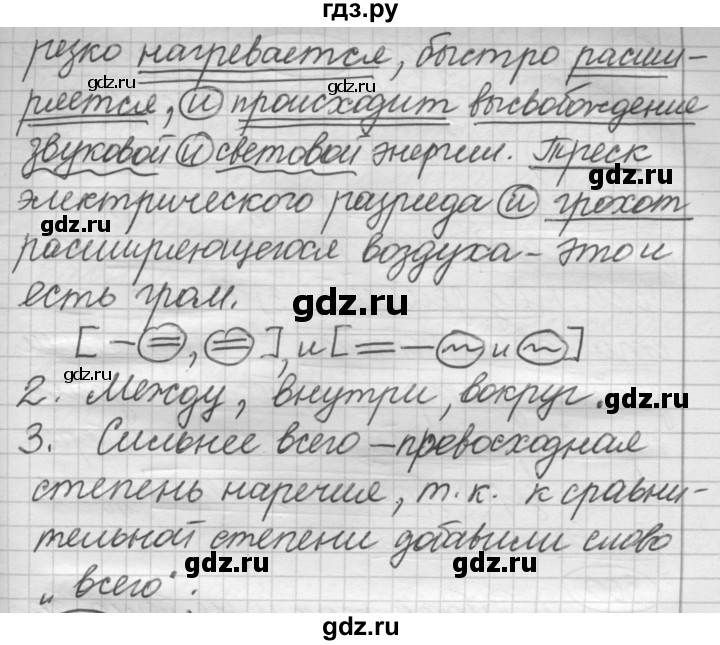 гдз.ру
резко нагревается, быстро расши-
gdz.ru
gdz.ru
ряется, и происходит высвобождение
звуковой и световой энергии. Треск
gdz.ru
электрического разряда и грохот
gdz.ru
gdz.ru
расширяющегося воздуха - это и
есть гром.
gdz.ru
[ - = , = ], и [ = - ~ и ~ ]
gdz.ru
2. Между, внутри, вокруг.
gdz.ru
3. Сильнее всего - превосходная
степень наречия, т.к. к сравни-
тельной степени добавили слово
gdz.ru
gdz.ru
„всего".
gdz.ru
gdz.ru